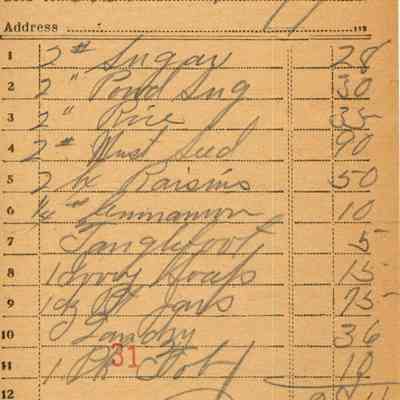 Address
1 2 # Sugar 28
2 2 " Powd Sug 30
3 2 " Rice 35
4 2 # Must Seed 90
5 2 bx Raisins 50
6 1/4 # Cinnamon 10
7 Tanglefoot 5
8 1 Ivory Soaps 15
9 1 dz Pt Jars 75
10 Laundry 36
11 1 Pk 10
31
12